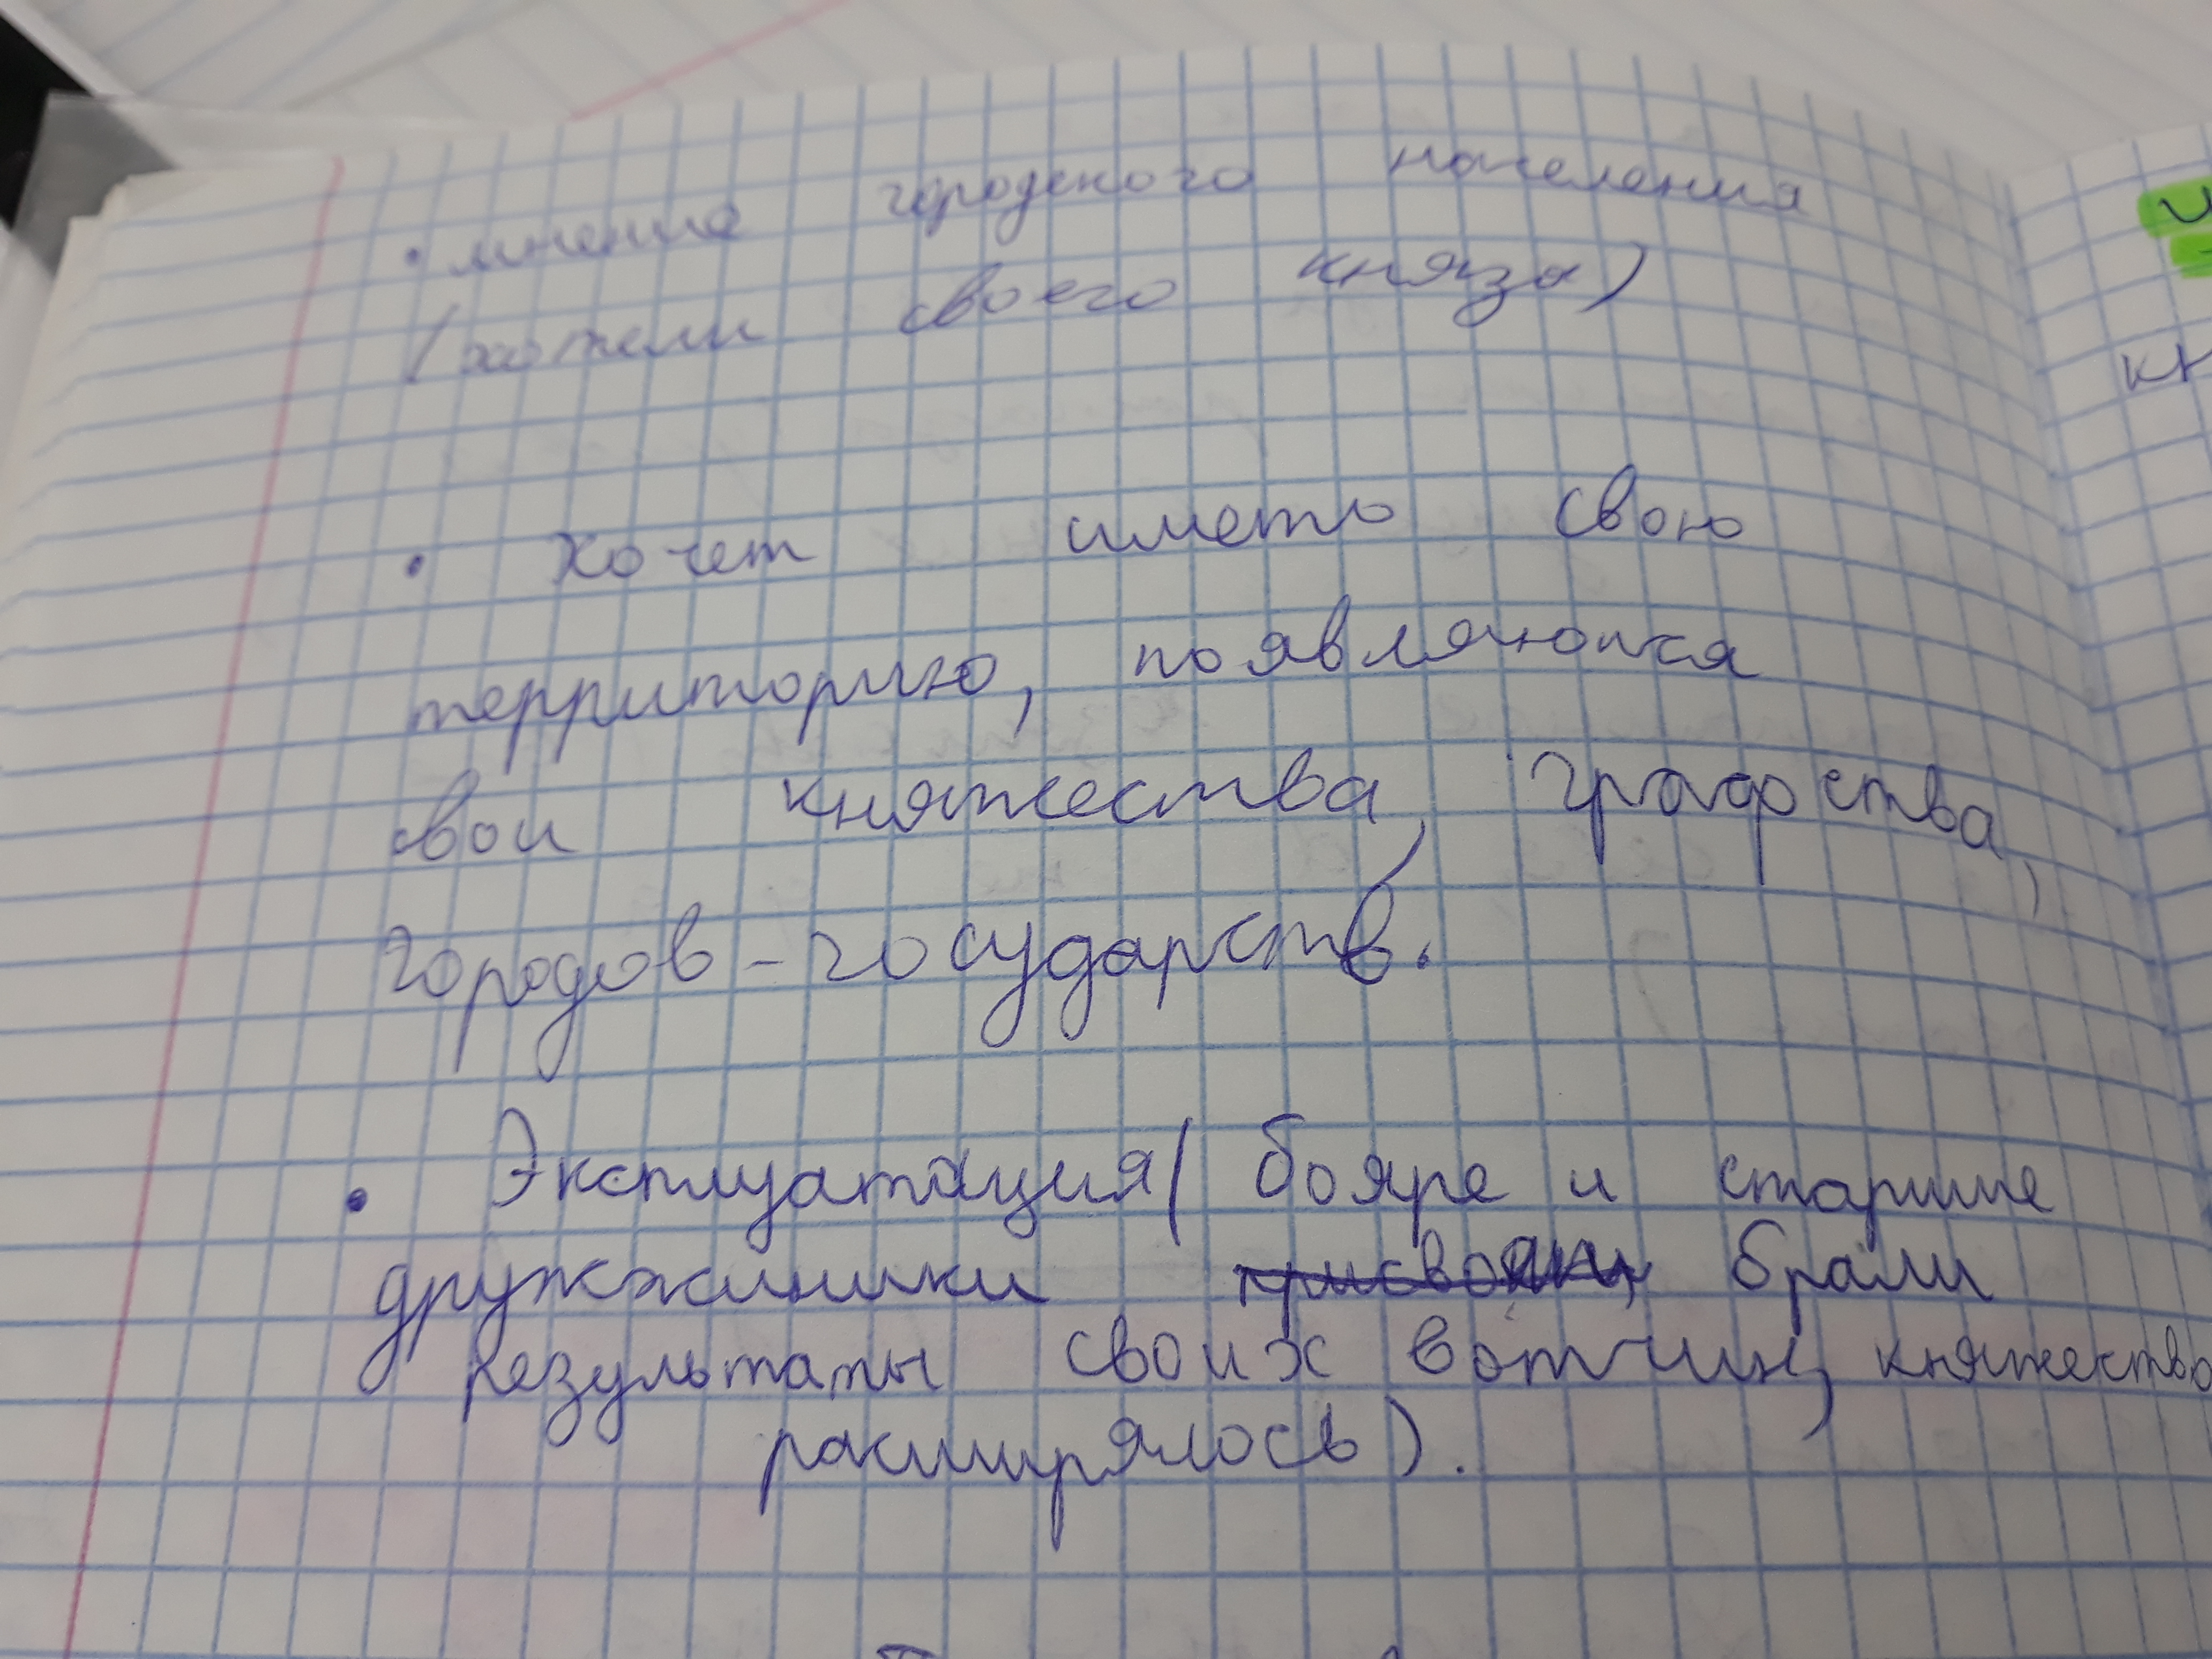 • мнение городского населения
(хотели своего князя)
• хочет иметь свою
территорию, появляются
свои княжества, графства,
городов-государств.
• Эксплуатация (бояре и старшие
дружинники брали
результаты своих вотчин, княжество
расширялось).